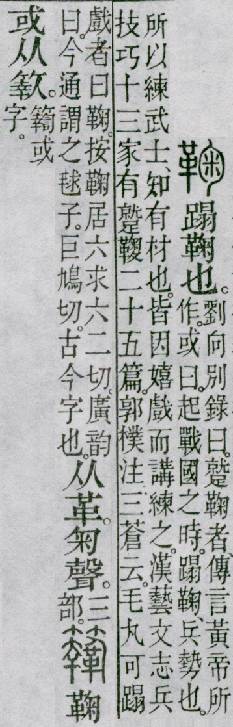 蹋鞠也。劉向別錄曰。蹵鞠者、傳言黃帝所
作。或曰。起戰國之時。蹋鞠、兵勢也。
所以練武士知有材也。皆因嬉戲而講練之。漢藝文志兵
技巧十三家有蹵鞠二十五篇。郭樸注三蒼云。毛丸可蹋
戲者曰鞠。按鞠居六求六二切。廣韵
曰。今通謂之毬子。巨鳩切。古今字也。
从革。匊聲。三
部。
鞠
或从
或
字。